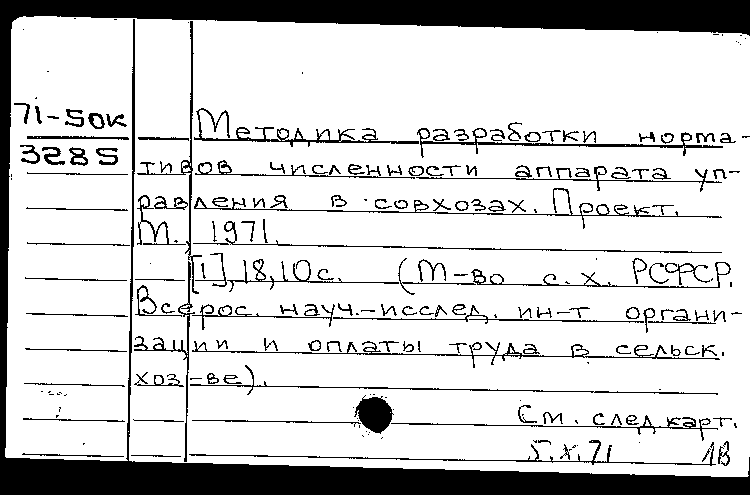 71-50к
3285
Методика разработки норма-
тивов численности аппарата уп-
равления в совхозах. Проект.
М., 1971.
[1], 18, 10 с. (М-во с. х. РСФСР.
Всерос. науч.-исслед. ин-т органи-
зации и оплаты труда в сельск.
хоз-ве).
См. след. карт.
5.X.71 1В